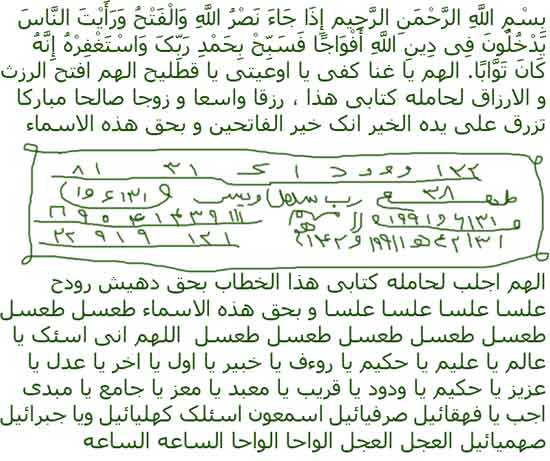 بِسْمِ اللَّهِ الرَّحْمَنِ الرَّحِيمِ إِذَا جَاءَ نَصْرُ اللَّهِ وَالْفَتْحُ وَرَأَيْتَ النَّاسَ
يَدْخُلُونَ فِى دِينِ اللَّهِ أَفْوَاجًا فَسَبِّحْ بِحَمْدِ رَبِّكَ وَاسْتَغْفِرْهُ إِنَّهُ
كَانَ تَوَّابًا. الهم يا غنا كفى يا اوعيتى يا قطليح الهم افتح الرزث
و الارزاق لحامله كتابى هذا ، رزقا واسعا و زوجا صالحا مباركا
تزرق على يده الخير انک خير الفاتحين و بحق هذه الاسماء
١٢٢ و و و د ا ک ٣١ ٨١
٣٨
١٢١ ٩ ١ ٩ ٢٢
الهم اجلب لحامله كتابى هذا الخطاب بحق دهيش رودح
علسا علسا علسا علسا و بحق هذه الاسماء طعسل طعسل
طعسل طعسل طعسل طعسل طعسل اللهم انى اسئک يا
عالم يا عليم يا حكيم يا روءف يا خبير يا اول يا اخر يا عدل يا
عزيز يا حكيم يا ودود يا قريب يا معبد يا معز يا جامع يا مبدى
اجب يا فهقائيل صرفيائيل اسمعون اسئلک كهليائيل ويا جبرائيل
صهميائيل العجل العجل الواحا الواحا الساعه الساعه